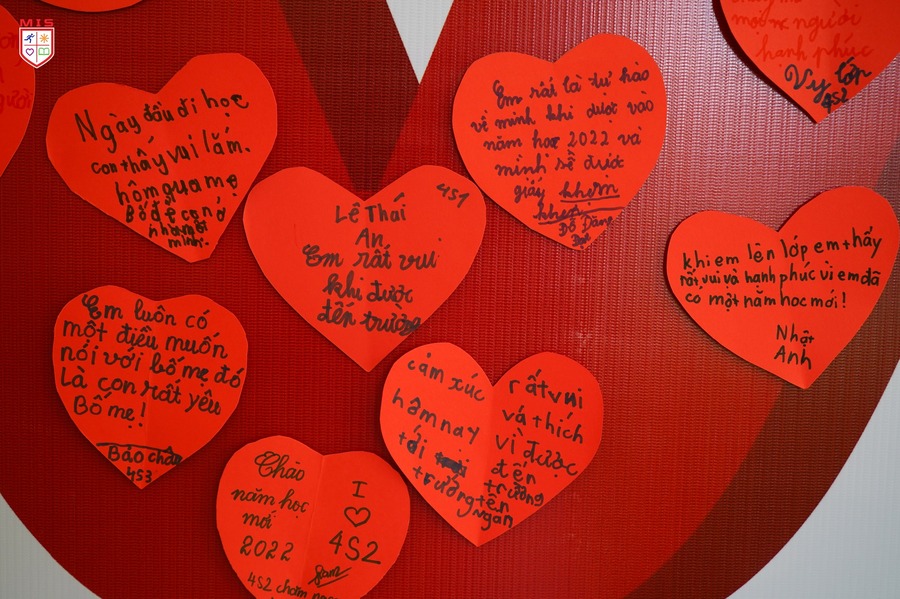 MIS
Ngày đầu đi học
con thấy vui lắm.
hôm qua mẹ
Bố để con ở
nhà một
mình.
Em rất là tự hào
về mình khi được vào
năm học 2022 và
mình sẽ được
giấy khem
khen
Đỗ Đăng
hạnh phúc
Vy lớp
4S2
4S1
Lê Thái
An
Em rất vui
khi được
đến trường
khi em lên lớp em thấy
rất vui và hạnh phúc vì em đã
co một năm học mới!
Nhật
Anh
Em luôn có
một điều muốn
nói với bố mẹ đó
là con rất yêu
Bố mẹ!
Bảo châu
4S3
cảm xúc
hôm nay
tới
trường tên
Ngân
rất vui
và thích
vì được
đến
trường
Chào
năm học
mới
2022
I
4S2
4S2 chăm